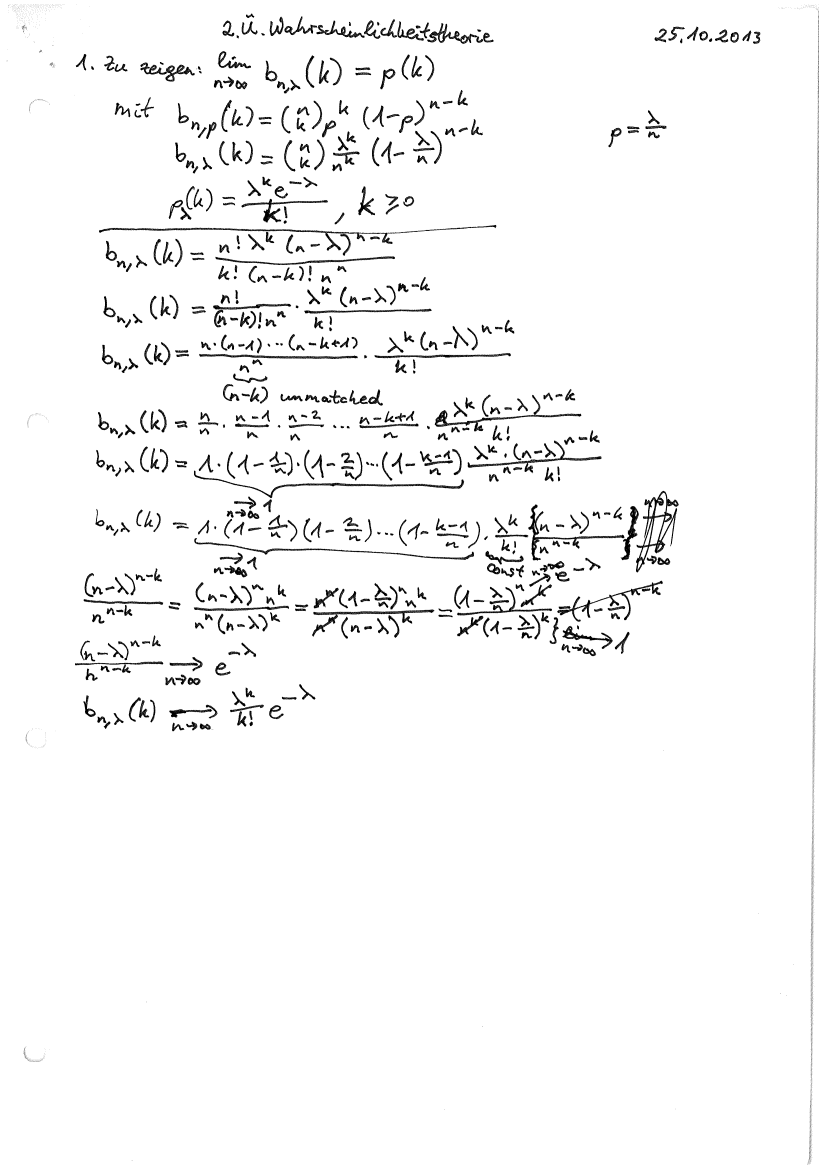 2. Ü. Wahrscheinlichkeitstheorie 25.10.2013
1. Zu zeigen: lim n→∞ b_{n,λ}(k) = p(k)
mit b_{n,p}(k) = (n k) p^k (1-p)^{n-k} p = λ/n
b_{n,λ}(k) = (n k) λ^k/n^k (1 - λ/n)^{n-k}
p_λ(k) = λ^k e^{-λ}/k! , k ≥ 0
b_{n,λ}(k) = n! λ^k (n-λ)^{n-k} / k! (n-k)! n^n
b_{n,λ}(k) = n!/(n-k)! n^n · λ^k (n-λ)^{n-k}/k!
b_{n,λ}(k) = n·(n-1)···(n-k+1)/n^n · λ^k (n-λ)^{n-k}/k!
(n-k) unmatched
b_{n,λ}(k) = n/n · n-1/n · n-2/n ... n-k+1/n · λ^k (n-λ)^{n-k}/n^{n-k} k!
b_{n,λ}(k) = 1·(1-1/n)·(1-2/n)···(1-k-1/n) · λ^k·(n-λ)^{n-k}/n^{n-k} k!
→ n→∞ 1
b_{n,λ}(k) = 1·(1-1/n)(1-2/n)...(1-k-1/n) · λ^k/k! {(n-λ)^{n-k}/n^{n-k}} n→∞ n→∞
→ n→∞ 1 const n→∞ → e^{-λ}
(n-λ)^{n-k}/n^{n-k} = (n-λ)^n n^k/n^n (n-λ)^k = n^n (1-λ/n)^n n^k/n^n (n-λ)^k = (1-λ/n)^n n^k/n^k (1-λ/n)^k = (1-λ/n)^{n-k}
} lim n→∞ → 1
(n-λ)^{n-k}/n^{n-k} → n→∞ e^{-λ}
b_{n,λ}(k) → n→∞ λ^k/k! e^{-λ}